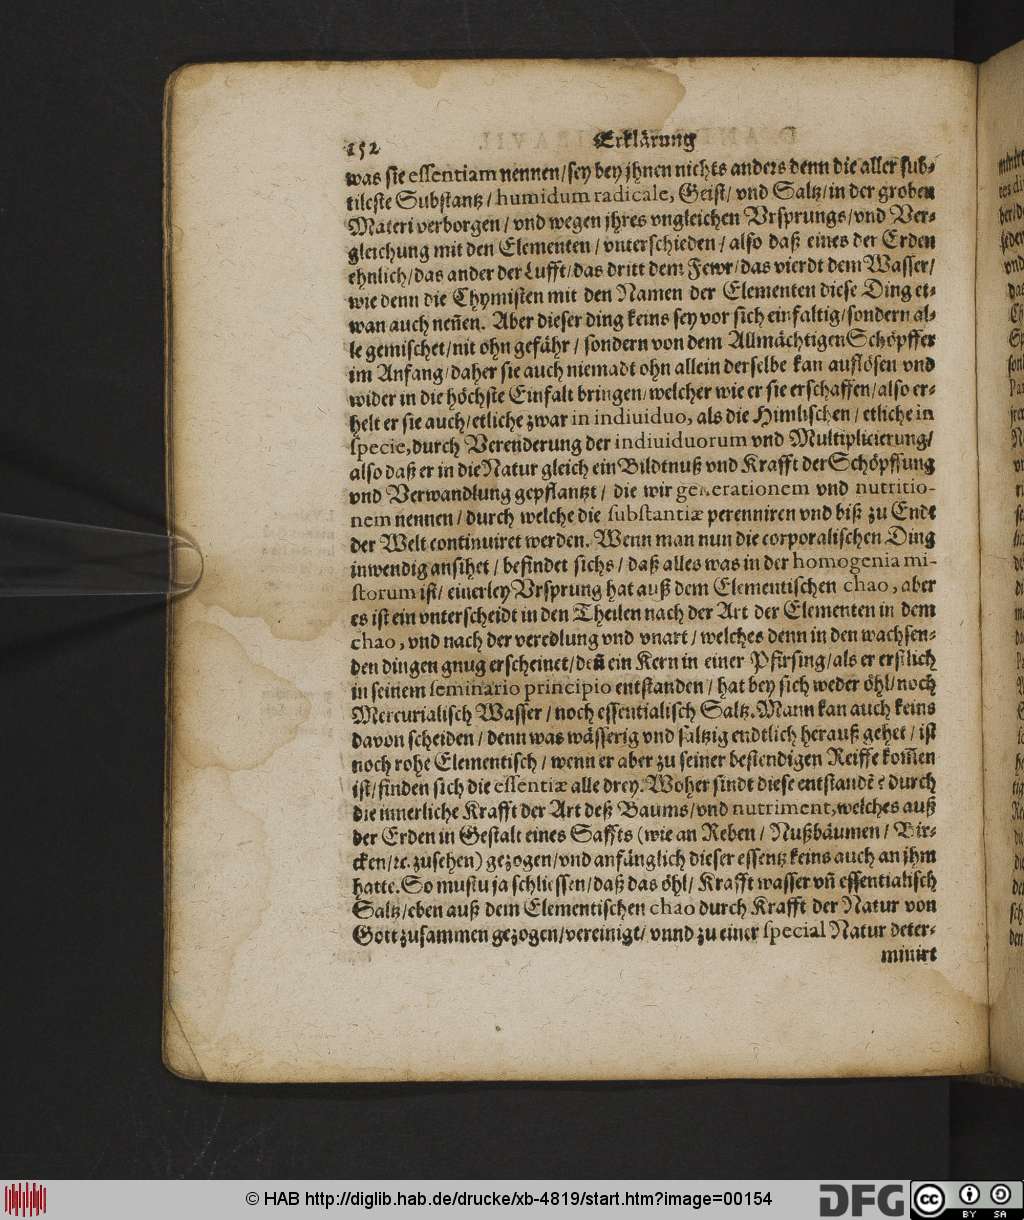 152 Erklärung
was sie essentiam nennen/sey bey jhnen nichts anders denn die aller sub-
tileste Substantz/humidum radicale, Geist/ vnd Saltz/in der groben
Materi verborgen/vnd wegen jhres vngleichen Vrsprungs/vnd Ver-
gleichung mit den Elementen/vnterschieden/also daß eines der Erden
ehnlich/das ander der Lufft/das dritt dem Fewr/das vierdt dem Wasser/
wie denn die Chymisten mit den Namen der Elementen diese Ding et-
wan auch neñen. Aber dieser ding keins sey vor sich einfaltig/sondern al-
le gemischet/nit ohn gefähr/ sondern von dem Allmächtigen Schöpffer
im Anfang/daher sie auch niemadt ohn allein derselbe kan auflösen vnd
wider in die höchste Einfalt bringen/welcher wie er sie erschaffen/also er-
helt er sie auch/etliche zwar in indiuiduo, als die Himlischen/etliche in
specie, durch Verenderung der indiuiduorum vnd Multiplicierung/
also daß er in die Natur gleich ein Bildtnuß vnd Krafft der Schöpffung
vnd Verwandlung gepflantzt/ die wir generationem vnd nutritio-
nem nennen/durch welche die substantiæ perenniren vnd biß zu Ende
der Welt continuiret werden. Wenn man nun die corporalischen Ding
inwendig ansihet/befindet sichs/ daß alles was in der homogenia mi-
storum ist/ einerley Vrsprung hat auß dem Elementischen chao, aber
es ist ein vnterscheidt in den Theilen nach der Art der Elementen in dem
chao, vnd nach der veredlung vnd vnart/welches denn in den wachsen-
den dingen gnug erscheinet/deñ ein Kern in einer Pfirsing/als er erstlich
in seinem seminario principio entstanden/hat bey sich weder öhl/noch
Mercurialisch Wasser/noch essentialisch Saltz. Mann kan auch keins
davon scheiden/denn was wässerig vnd saltzig endtlich herauß gehet/ist
noch rohe Elementisch/wenn er aber zu seiner bestendigen Reiffe kom̃en
ist/finden sich die essentiæ alle drey. Woher sindt diese entstandẽ? durch
die innerliche Krafft der Art deß Baums/vnd nutriment, welches auß
der Erden in Gestalt eines Saffts (wie an Reben/ Nußbäumen/ Bir-
cken/ꝛc. zusehen) gezogen/vnd anfänglich dieser essentz keins auch an jhm
hatte. So mustu ja schliessen/daß das öhl/ Krafft wasser vñ essentialisch
Saltz/eben auß dem Elementischen chao durch Krafft der Natur von
Gott zusammen gezogen/vereinigt/ vnnd zu einer special Natur deter-
minirt
© HAB http://diglib.hab.de/drucke/xb-4819/start.htm?image=00154
DFG
cc BY SA